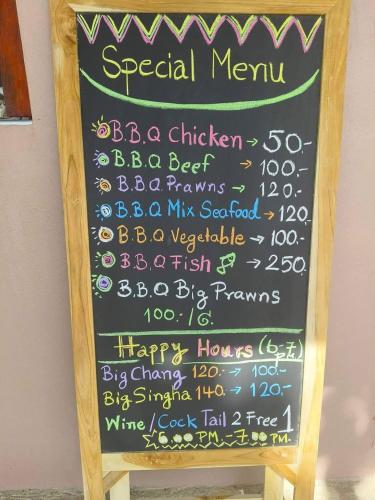 Special Menu
B.B.Q Chicken → 50.-
B.B.Q Beef → 100.-
B.B.Q Prawns → 120.-
B.B.Q Mix Seafood → 120.-
B.B.Q Vegetable → 100.-
B.B.Q Fish → 250.
B.B.Q Big Prawns
100.-/G.
Happy Hours (6-7 PM)
Big Chang 120.- → 100.-
Big Singha 140. → 120.-
Wine / Cock Tail 2 Free 1
6.00 PM. - 7.00 PM.